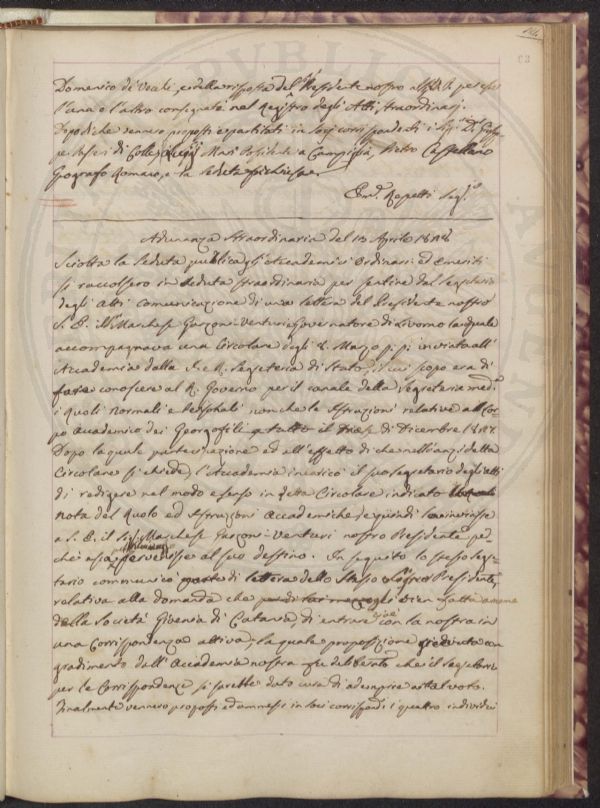 Domenico di Vecchi, e della risposta del Presidente nostro
l'una e l'altra consegnate nel Registro degli Atti straordinarj.
Dopo di che vennero proposti e partitati in Socj corrispondenti i Sig.ri
di Colle, Masi Residente a Campiglia, Pietro Castellano
Geografo Romano, e la Seduta si chiuse.
Em. Repetti Seg.o
Adunanza Straordinaria del 13 Aprile 1828
Sciolta la Seduta pubblica gli Accademici Ordinari ed Emeriti
si raccolsero in Seduta straordinaria per sentire dal Segretario
degli Atti comunicazione di una lettera del Presidente nostro
S. E. il Marchese Garzoni Venturi Governatore di Livorno la quale
accompagnava una Circolare degli Marzo p.p. inviata all'
Accademia dalla I. e R. Segreteria di Stato, il cui scopo era di
fare conoscere al R. Governo per il canale della Segreteria med.a
i Ruoli normali e personali nonchè le Istruzioni relative al Cor-
po Accademico dei Georgofili a tutto il mese di Dicembre 1827.
Dopo la quale partecipazione ed all'effetto di che nell'anzidetta
Circolare si chiede, l'Accademia incaricò il suo Segretario degli Atti
di redigere nel modo e senso in detta Circolare indicato
nota del Ruolo ed Istruzioni Accademiche, e quindi inviarsi
a S. E. il Sig. Marchese Garzoni Venturi nostro Presidente per-
chè al suo destino. In seguito lo stesso Segre-
tario comunicò di lettera dello Stesso Presidente,
relativa alla domanda che vien fatta a nome
della Società Gioenia di Catania, di entrare cioè con la nostra in
una corrispondenza attiva; la quale proposizione con
gradimento dall'Accademia nostra fu deliberato che il Segretario
per le Corrispondenze si sarebbe dato cura di adempire a tal voto.
Finalmente vennero proposti ed ammessi in Socj corrispond.i i quattro individui